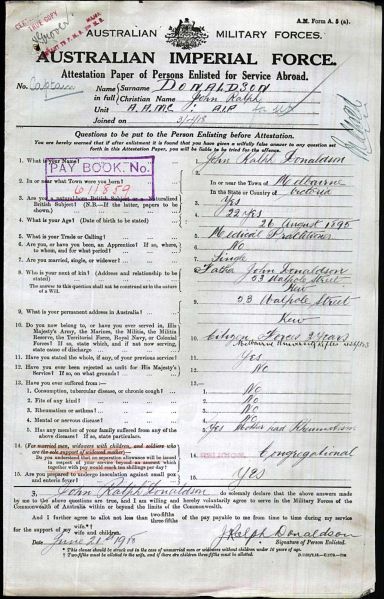 A.M. Form A. 5 (a).
AUSTRALIAN MILITARY FORCES.
AUSTRALIAN IMPERIAL FORCE.
Attestation Paper of Persons Enlisted for Service Abroad.
No. Captain
Name Surname of DONALDSON
in full Christian Name John Ralph
Unit A.A.M.C. A.I.F.
Joined
Questions to be put to the Person Enlisting before Attestation.
You are hereby warned that if after enlistment it is found that you have given a wilfully false answer to any question set
forth in this Attestation Paper, you will be liable to be tried for the offence.
1. What is your Name?
1. John Ralph Donaldson
PAY BOOK. No.
611859
2. In or near what Town were you born?
In or near the Town of Melbourne
in the State or Country of Victoria
3. Are you a natural-born British Subject or a Naturalized
British Subject? (N.B.—If the latter, papers to be
shown).
Yes
4. What is your Age? (Date of birth to be stated)
22 yrs
26 August 1895
5. What is your Trade or Calling?
Medical Practitioner
6. Are you, or have you been, an Apprentice? If so, where,
to whom, and for what period?
No
7. Are you married, single, or widower?
Single
8. Who is your next of kin? (Address and relationship to be
stated)
Father John Donaldson
53 Walpole Street
Kew
The answer to this question shall not be construed as in the nature
of a Will.
9. What is your permanent address in Australia?
53 Walpole Street
Kew
10. Do you now belong to, or have you ever served in, His
Majesty's Army, the Marines, the Militia, the Militia
Reserve, the Territorial Force, Royal Navy, or Colonial
Forces? If so, state which, and if not now serving,
state cause of discharge
Citizen Forces 3 Years
Melbourne University Rifles
11. Have you stated the whole, if any, of your previous service?
11. Yes
12. Have you ever been rejected as unfit for His Majesty's
Service? If so, on what grounds?
12. No
13. Have you suffered from:—
1. Consumption, tubercular disease, or chronic cough?
1. No
2. Fits of any kind?
2. No
3. Rheumatism or asthma?
3. No
4. Mental or nervous disease?
4. No
5. Has any member of your family suffered from any of the
above diseases? If so, state particulars.
5. Yes Mother had Rheumatism
14. (For married men, widowers with children, and soldiers who
are the sole support of widowed mother)—
Do you understand that no separation allowance will be issued
in respect of your service beyond an amount which
together with pay would reach ten shillings per day?
14. RELIGION. Congregational
15. Are you prepared to undergo inoculation against small pox
and enteric fever?
15. YES
I, John Ralph Donaldson do solemnly declare that the above answers made by
me to the above questions are true, and I am willing and hereby voluntarily agree to serve in the Military Forces of the
Commonwealth of Australia within or beyond the limits of the Commonwealth.
And I further agree to allot not less than two-fifths three-fifths of the pay payable to me from time to time during my service
for the support of my wife.* wife and children.†
Date June 21st 1918
J Ralph Donaldson
Signature of Person Enlisted.
* This clause should be struck out in the case of unmarried men or widowers without children under 18 years of age.
† Two-fifths must be allotted to the wife, and if there are children three-fifths must be allotted.